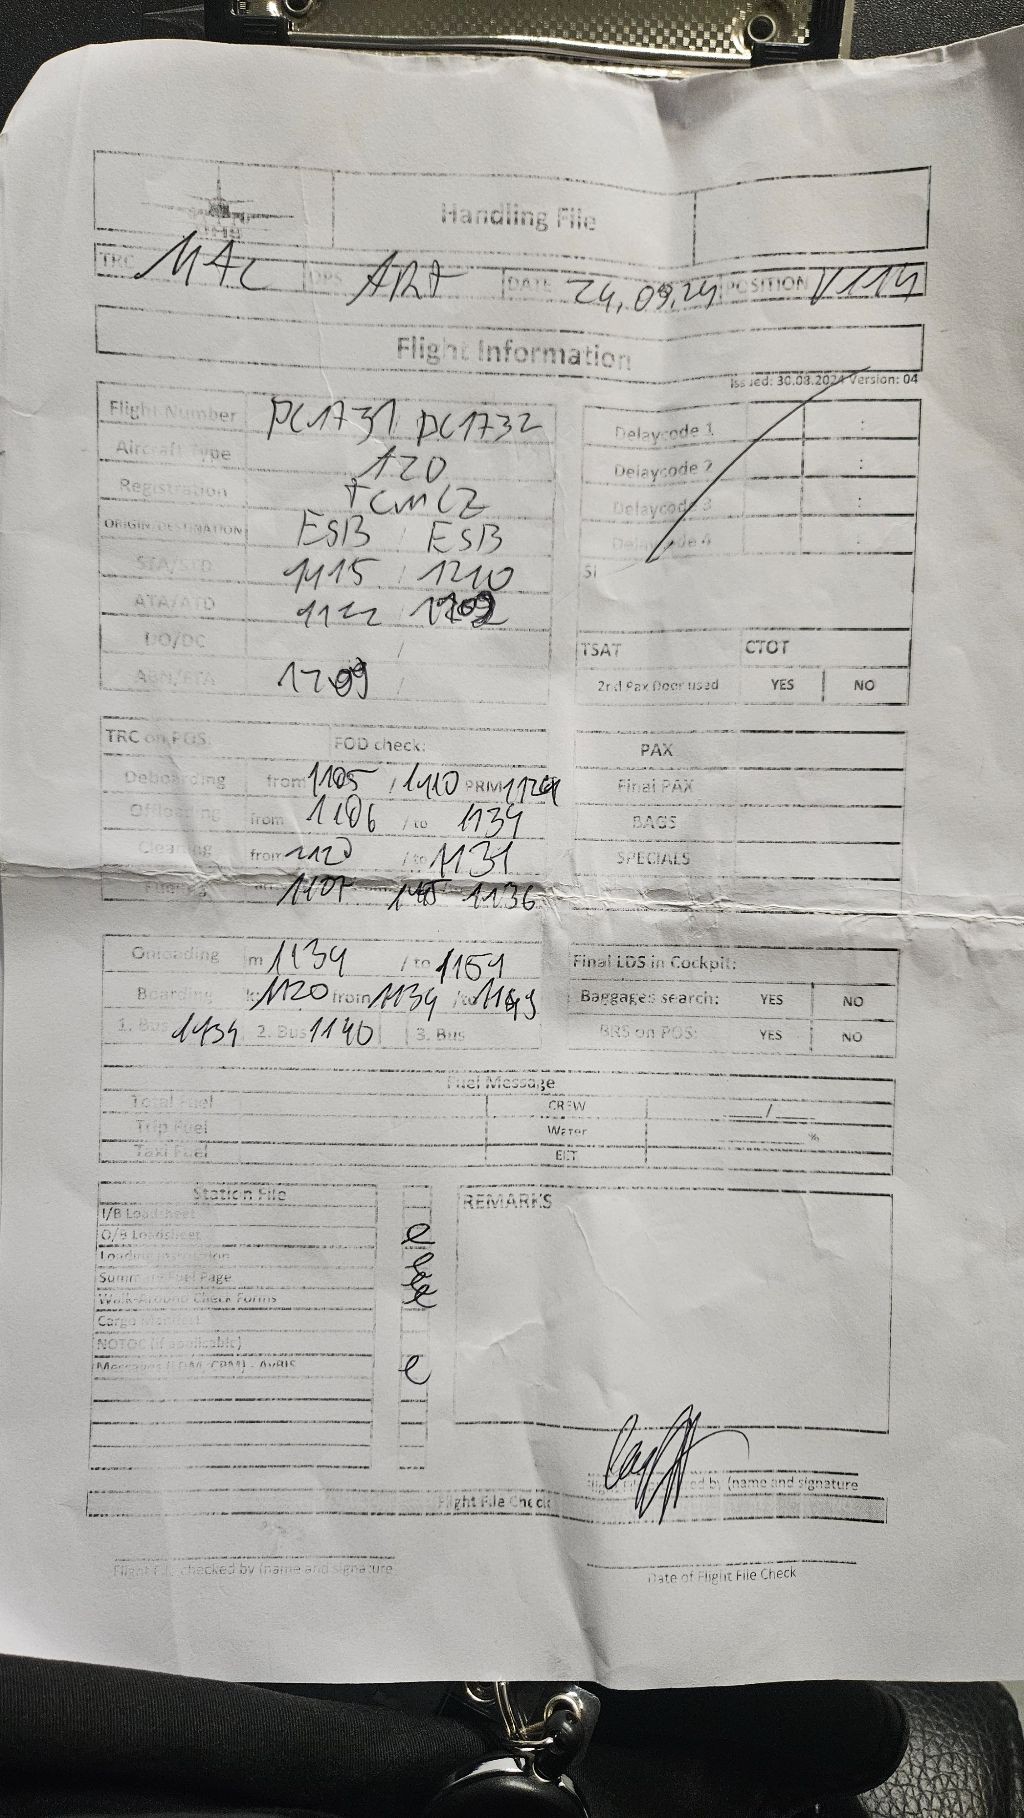 Handling File
TRC MAC OPS ART DATE 24.09.24 POSITION V114
Flight Information
Issued: 30.08.2024 Version: 04
Flight Number PC1731 PC1732
Aircraft Type
Registration TCMCZ
ORIGIN/DESTINATION ESB / ESB
STA/STD 1115 / 1210
ATA/ATD
DO/DC /
1209 /
Delaycode 1 :
Delaycode 2 :
Delaycode 3 :
Delaycode 4
SI
TSAT CTOT
2nd Pax Door used YES NO
TRC on POS: FOD check:
Deboarding from 1105 / 1110 PRM
Offloading from 1106 / to 1134
Cleaning from 1120 / to 1131
Fueling 1107 1136
PAX
Final PAX
BAGS
SPECIALS
Onloading 1134 / to 1154
Boarding 1120 from 1134 / to
1. Bus 1134 2. Bus 1140 3. Bus
Final LDS in Cockpit:
Baggages search: YES NO
BRS on POS: YES NO
Fuel Message
Total Fuel CREW ____/____
Trip Fuel Water ________%
Taxi Fuel EET
Station File
I/B Loadsheet
O/B Loadsheet
Loading Instruction
Summary Fuel Page
Walk-Around Check Forms
Cargo Manifest
NOTOC (if applicable)
Messages (LDM, CPM) - AvBIS
REMARKS
by (name and signature
Flight File Check
Flight File checked by (name and signature
Date of Flight File Check